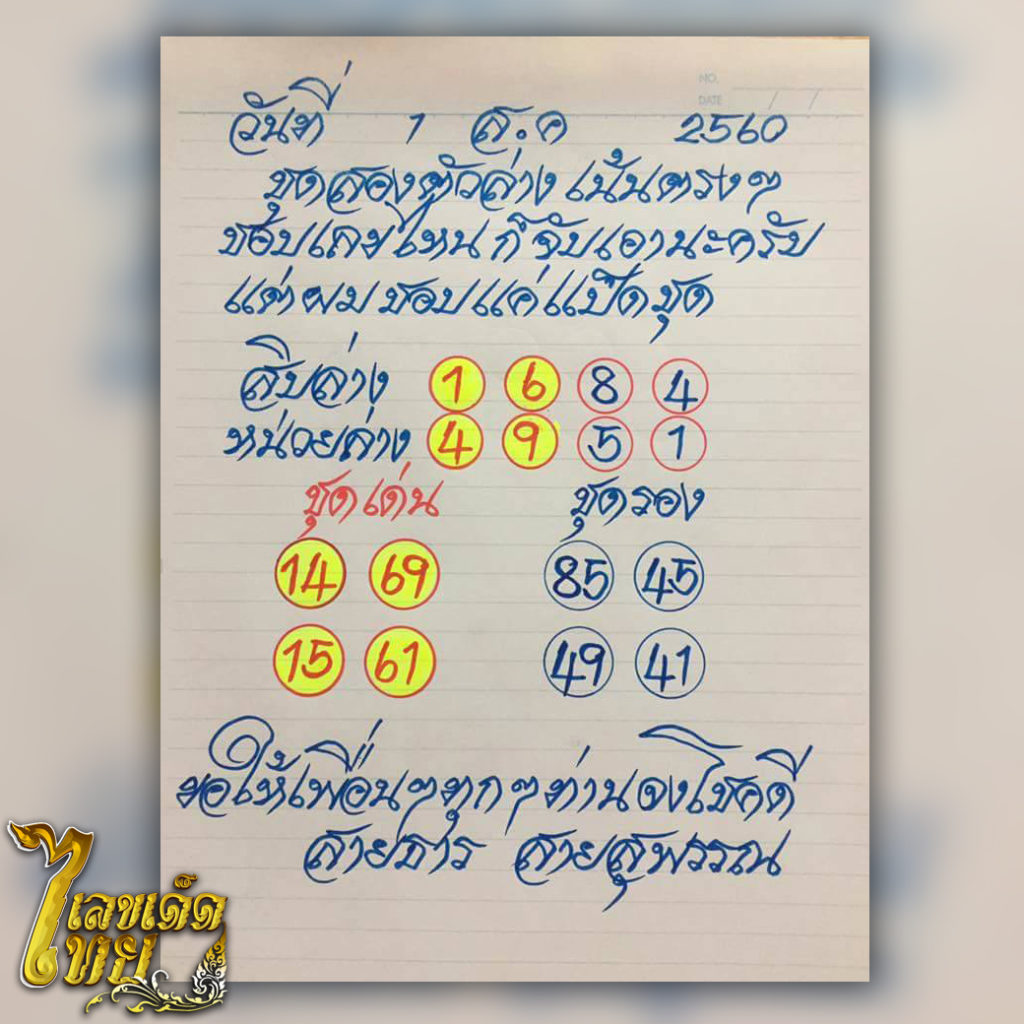 NO.
DATE / /
วันที่ 1 ส.ค 2560
ชุดสองตัวล่าง เน้นตรงๆ
ชอบเลขไหน ก็จับเอานะครับ
แต่ ผม ชอบ แค่ แปดชุด
สิบล่าง 1 6 8 4
หน่วยล่าง 4 9 5 1
ชุดเด่น ชุดรอง
14 69 85 45
15 61 49 41
ขอให้เพื่อนๆทุกๆท่านจงโชคดี
สายธาร สายสุพรรณ
เลขเด็ด
ไทย